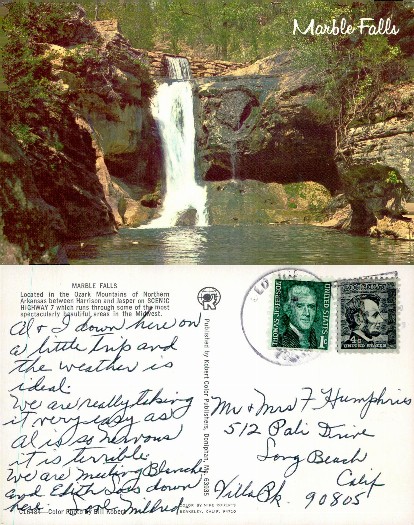 Marble Falls
MARBLE FALLS
Located in the Ozark Mountains of Northern
Arkansas between Harrison and Jasper on SCENIC
HIGHWAY 7 which runs through some of the most
spectacularly beautiful areas in the Midwest.
Al & I down here on
a little trip and
the weather is
ideal.
We are really taking
it very easy as
Al is so nervous
it is terrible.
We are meeting Blanche
and Edith down
here. Mildred
Color Photo by Bill Robert
Published by Robert Color Publishers, Doniphan, Mo. 63935
BERKELEY, CALIF. 94710
THOMAS JEFFERSON
UNITED STATES
1c
4c
UNITED STATES
Mr & Mrs F Humphries
512 Pali Drive
Long Beach
Calif
Villa Pk. 90805